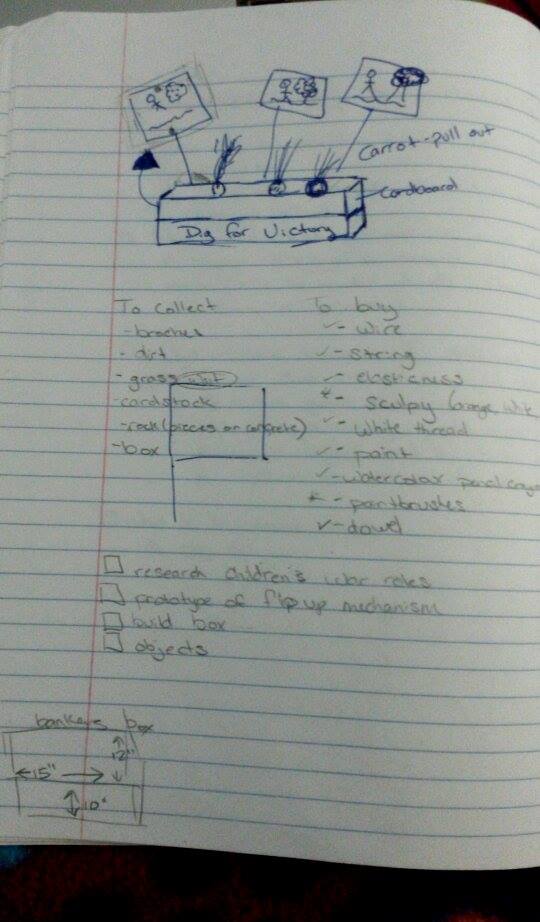 Carrot-pull out
Cardboard
Dig for Victory
To collect
- branches
- dirt
- grass
- cardstock
- rock (pieces or concrete)
- box
To buy
✓ - wire
✓ - string
✓ - elasticness
* - sculpy (orange, whit
✓ - white thread
✓ - paint
✓ - watercolor pencil cray
* - paintbrushes
✓ - dowel
research children's war roles
prototype of flip up mechanism
build box
objects
bankers box
12"
15"
10"